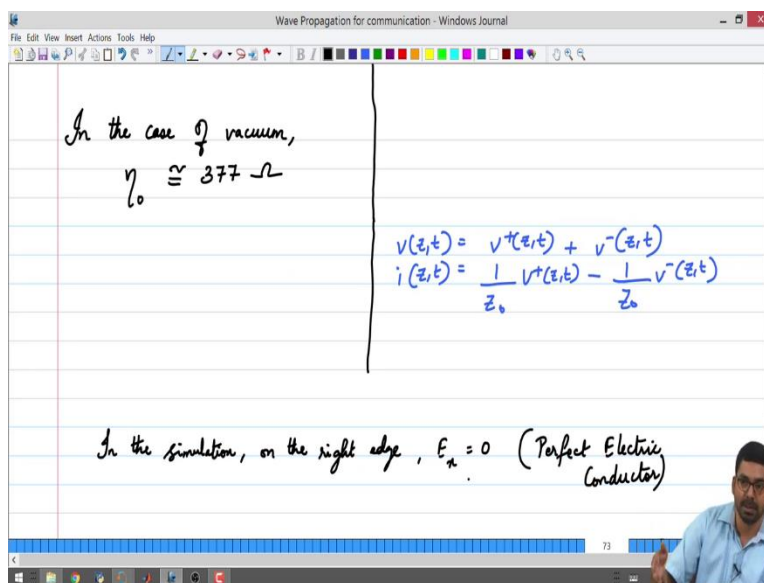 Wave Propagation for communication - Windows Journal
File Edit View Insert Actions Tools Help
B I
In the case of vacuum,
η₀ ≅ 377 Ω
v(z,t) = v⁺(z,t) + v⁻(z,t)
i(z,t) = 1/Z₀ v⁺(z,t) - 1/Z₀ v⁻(z,t)
In the simulation, on the right edge, Eₓ = 0 (Perfect Electric
Conductor)
73